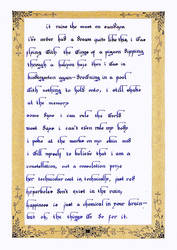 it ruins the most on sundays
i've never had a dream quite like this, i was
flying with the wings of a pigeon slipping
through a balcony hole then i was in
kindergarten again—drowning in a pool
with nothing to hold onto, i still shake
at the memory
some days i can rule the world
most days i can't even rule my body
i poke at the marks on my skin and
i tell myself to believe that i am a
constellation, not a consolation prize
her technicolor not in technically, just red
hyperboles don't exist in the rain,
happiness is just a chemical in your brain—
but oh, the things we do for it.